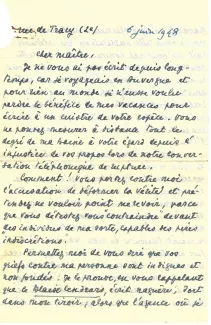 rue de Tracy (2e) 6 juin 1948
Cher maître,
Je ne vous ai pas écrit depuis long-
temps, car je voyageais en Auvergne et
pour rien au monde je n'eusse voulu
perdre le bénéfice de mes vacances pour
écrire à un cuistre de votre espèce. Vous
ne pouvez mesurer à distance tout le
degré de ma haine à votre égard depuis
injustice de vos propos lors de notre conver-
sation téléphonique de
Comment ! Vous portez contre moi
l'accusation de déformer la vérité et pré-
tendez ne vouloir point me revoir, parce
que vous détestez
des individus de ma sorte, capables des pires
indiscrétions.
Permettez-moi de vous dire que vos
griefs contre ma personne sont indignes et
non fondés. Je le prouve, en vous rappelant
que le
dans mon tiroir, alors que l'agence où j'ai